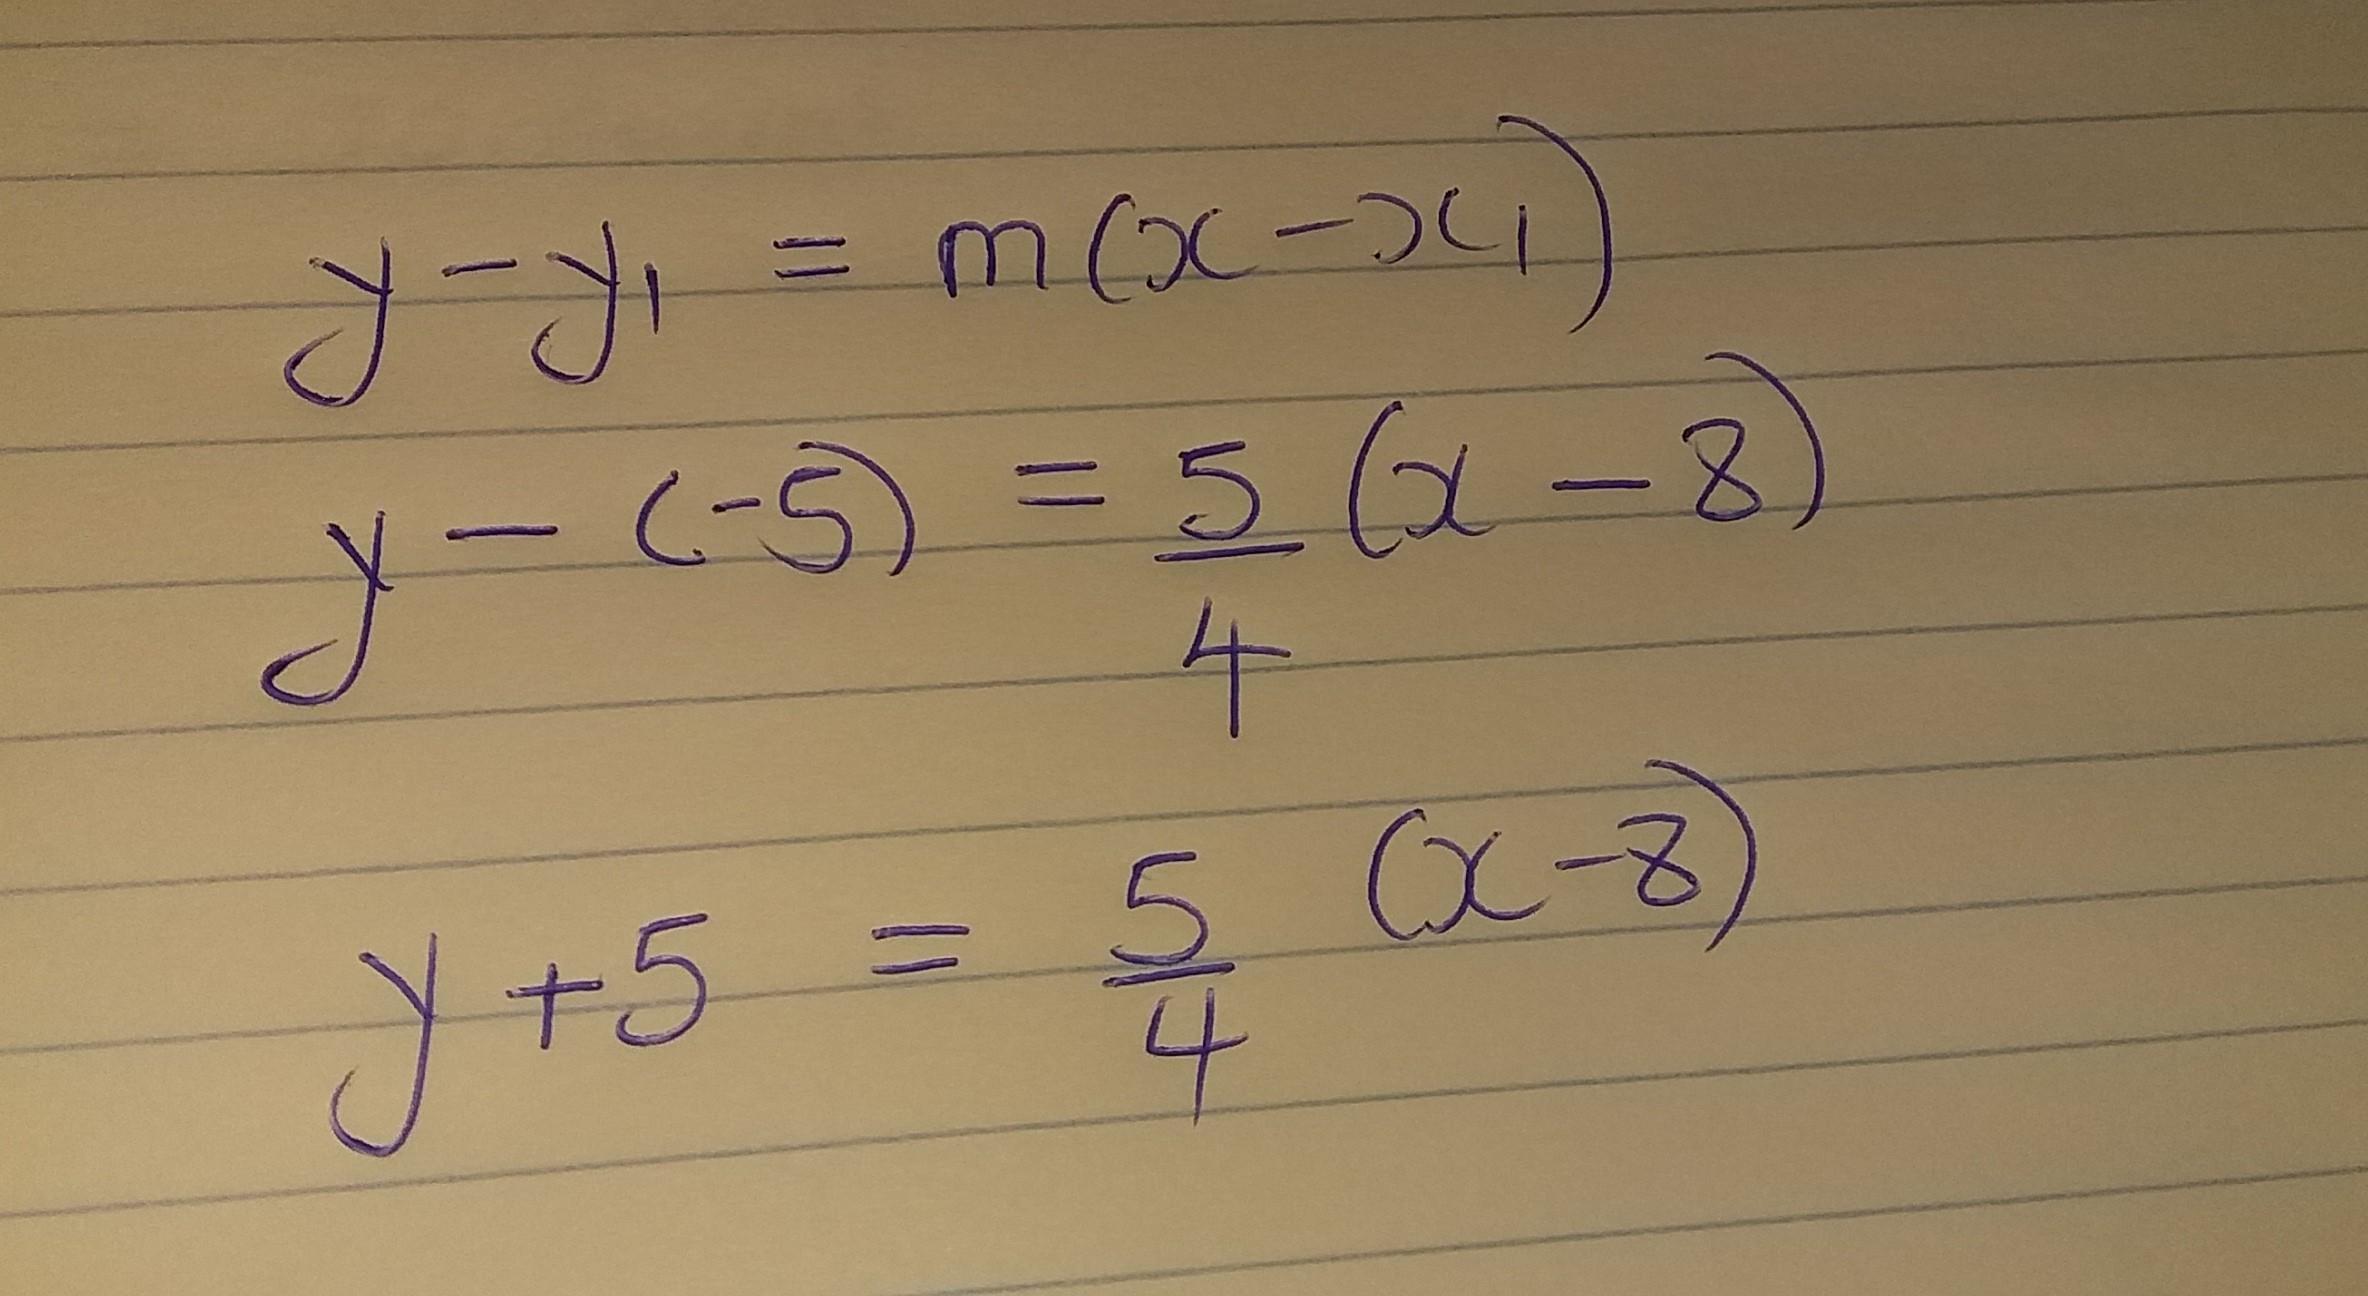 y - y₁ = m(x - x₁)
y - (-5) = 5/4 (x - 8)
y + 5 = 5/4 (x - 8)